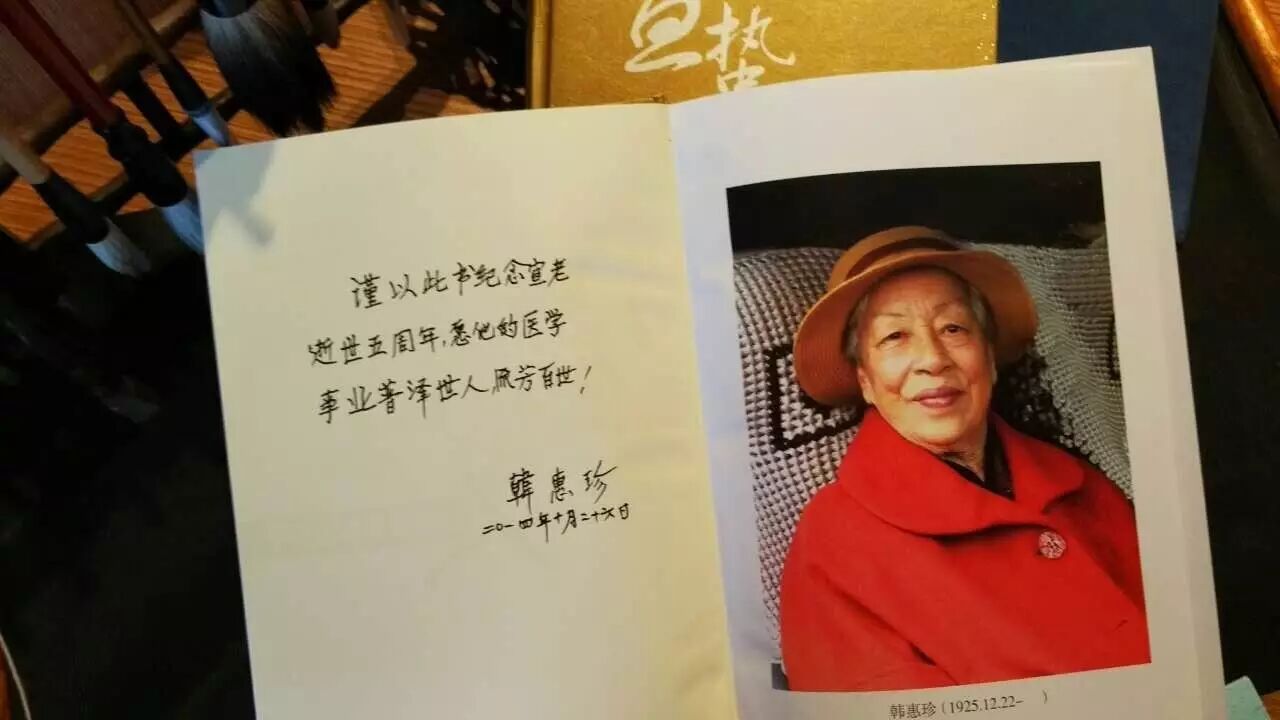 宣蛰
谨以此书纪念宣老
逝世五周年,愿他的医学
事业普泽世人,流芳百世!
韩惠珍
二〇一四年十月二十六日
韩惠珍(1925.12.22- )